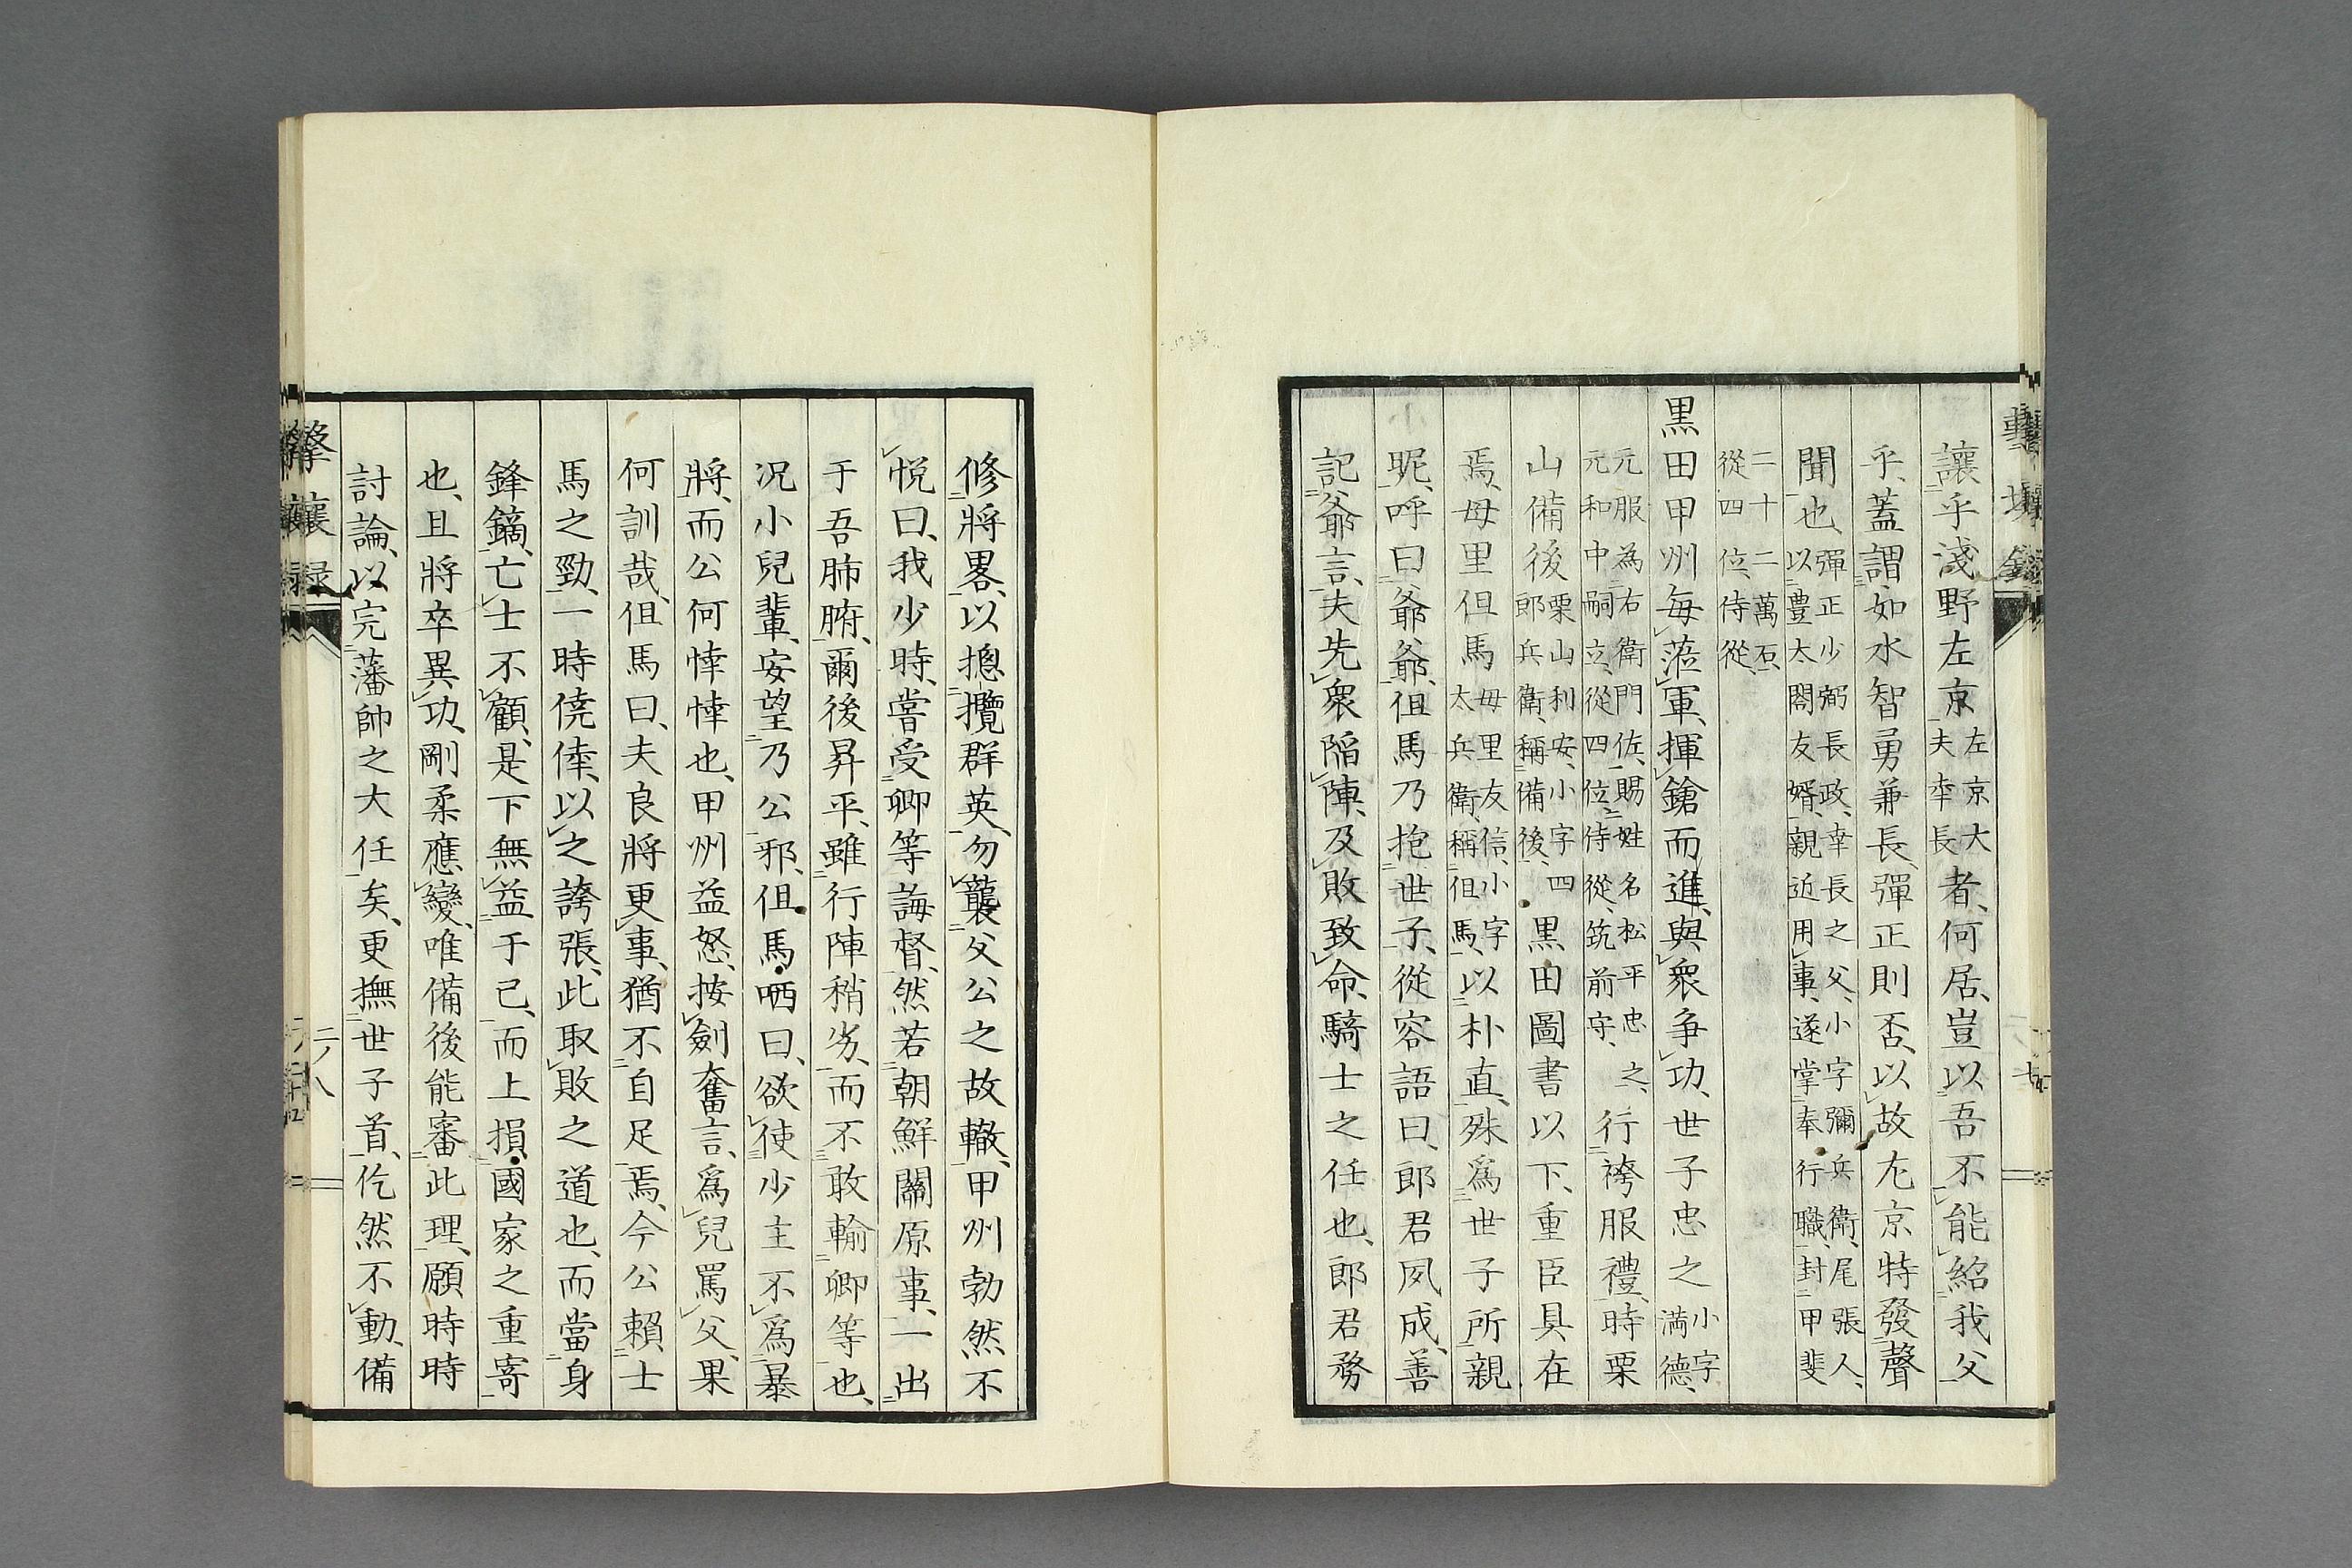 讓乎淺野左京左京大夫幸長者、何居、豈以吾不能紹我父
乎、蓋謂如水智勇兼長、彈正則否、以故尤京特發聲
聞也、彈正少弼長政、幸長之父、小字彌兵衛、尾張人、以豊太閤友婿、親近用事、遂掌奉行職、封甲斐
二十二萬石、從四位侍從、
黒田甲州毎蒞軍、揮鎗而進、與衆争功、世子忠之小字満德、
元服為右衛門佐、賜姓名松平忠之、元和中嗣立、從四位侍從、筑前守、行袴服禮、時栗
山備後栗山利安、小字四郎兵衛、稱備後、黒田圖書以下、重臣具在
焉、母里但馬母里友信、小字太兵衛、稱但馬、以朴直、殊爲世子所親
昵、呼曰爺爺、但馬乃抱世子、從容語曰、郎君夙成、善
記爺言、夫先衆陷陣、及敗致命、騎士之任也、郎君務
修將畧、以摠攬群英、勿襲父公之故轍、甲州勃然不
悦曰、我少時、嘗受卿等誨督、然若朝鮮關原事、一出
于吾肺腑、爾後昇平、雖行陣稍劣、而不敢輸卿等也、
况小兒輩、安望乃公邪、但馬哂曰、欲使少主不爲暴
將、而公何悻悻也、甲州益怒、按劍奮言、爲兒罵父、果
何訓哉、但馬曰、夫良將更事、猶不自足焉、今公頼士
馬之勁、一時僥倖、以之誇張、此取敗之道也、而當身
鋒鏑、亡士不顧、是下無益于己、而上損國家之重寄
也、且將卒異功、剛柔應變、唯備後能審此理、願時時
討論、以完藩帥之大任矣、更撫世子首、仡然不動、備
擊攘録
二ノ八